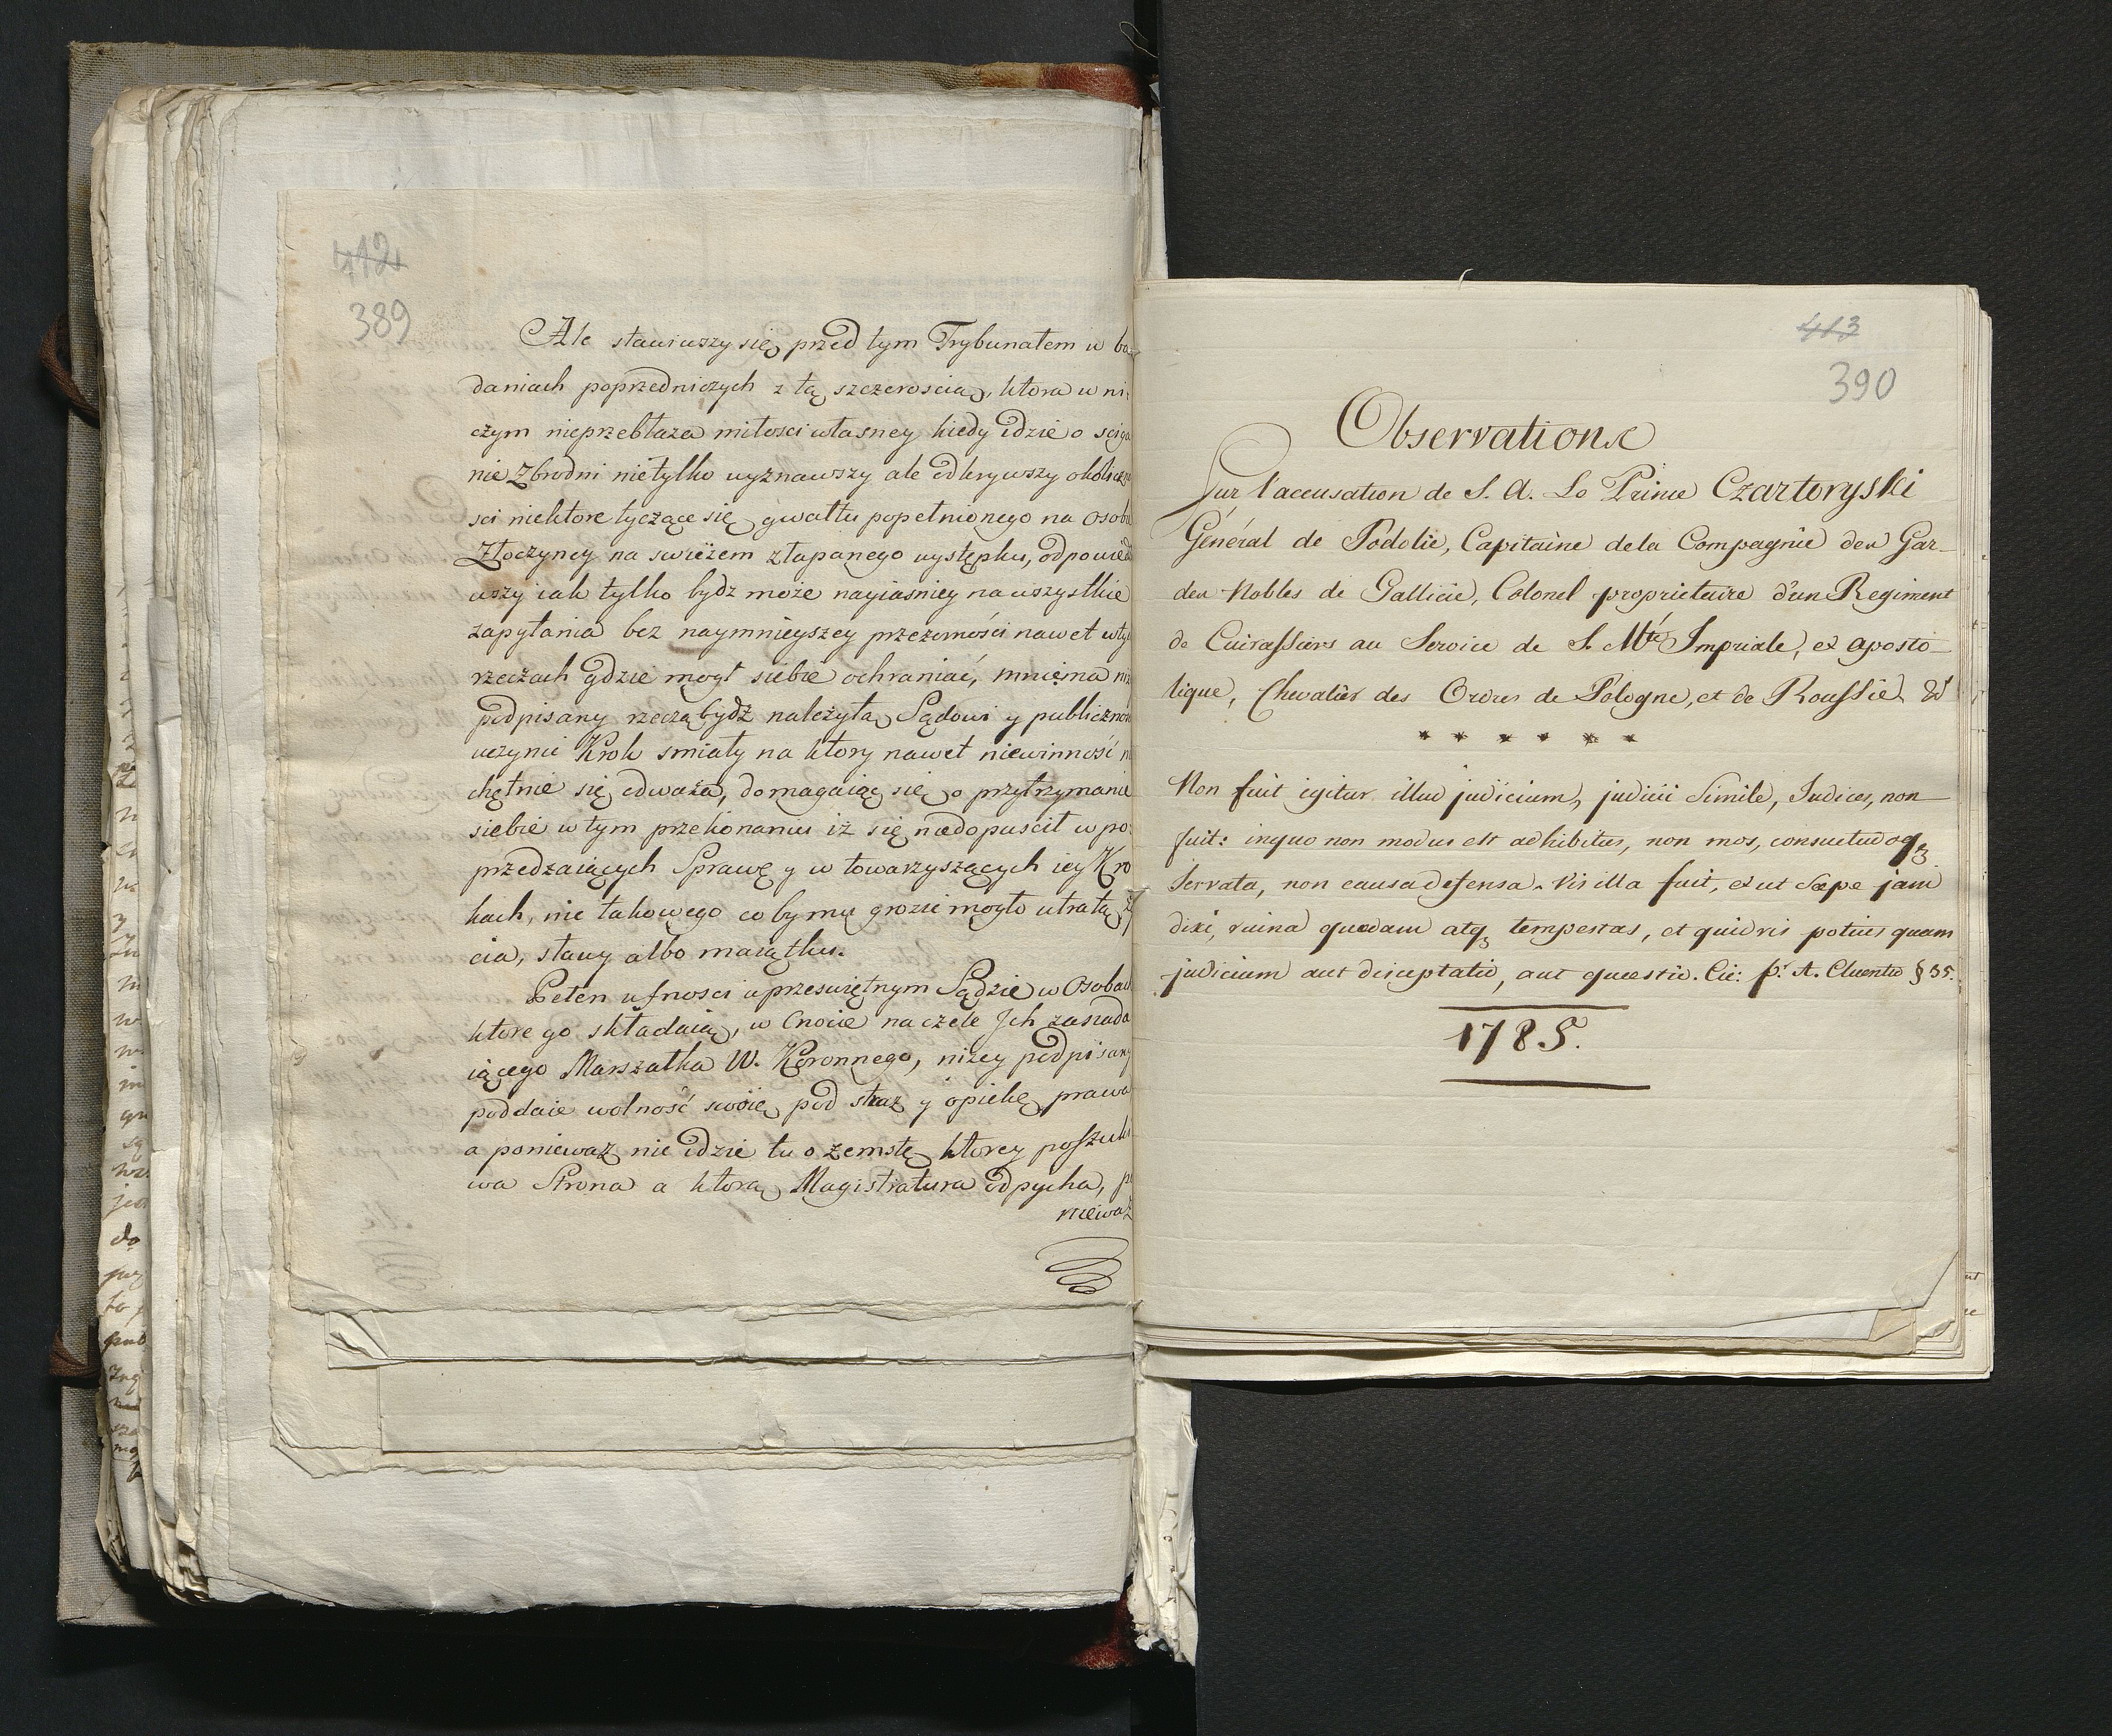 412
389
Ale stawiwszy się przed tym Trybunałem w ba
daniach poprzedniczych z tą szczeroscią, ktora w ni
czym nieprzebłaza miłosci własney kiedy idzie o sciga
nie Zbrodni nietylko wyznawszy ale odkrywszy okoliczno
sci niektore tyczące się gwałtu popełnionego na osobie
Złoczyncy na swieżem złapanego występku, odpowied
wszy iak tylko bydz może nayiasniey na wszystkie
zapytania bez naymnieyszey przezorności nawet w tych
rzeczach gdzie mogł siebie ochraniać, mniema niż
podpisany rzeczą bydź należytą Sądowi y publicznosci
uczynic Krok smiały na ktory nawet niewinność n
chętnie się odważa, domagaiąc się o przytrzymanie
siebie w tym przekonaniu iż się niedopuscił w po
przedzaiących Sprawę y w towarzyszących iey Kro
kach, nic takowego co by mu grozic mogło utratą ży
cia, sławy albo maiątku.
Pełen ufnosci w przeswiętnym Sądzie w Osobach
ktore go składaią, w Cnocie na czele Ich zasiada
iącego Marszałka W. Koronnego, niżey podpisany
poddaie wolność swoię pod straż y opiekę prawa
a ponieważ nie idzie tu o zemstę ktorey poszuki
wa Strona a ktorą Magistratura odpycha, po
nieważ
413
390
Observations
Sur l'accusation de S. A. Le Prince Czartoryski
Général de Podolie, Capitaine dela Compagnie des Gar-
des Nobles de Gallicie, Colonel proprietaire d'un Regiment
de Cuirassiers au Service de S. Mté Impriale, et aposto-
lique, Chevalier des Ordres de Pologne, et de Roussie &
* * * * * *
Non fuit igitur illud judicium, judicii Simile, Judices, non
fuit: inquo non modus est adhibitus, non mos, consuetudoq3
Servata, non causa defensa. Vis illa fuit, et ut Sæpe jam
dixi, ruina quædam atq3 tempestas, et quidvis potius quam
judicium aut disceptatio, aut quæstio. Cic: pr A. Cluentio § 35.
1785.